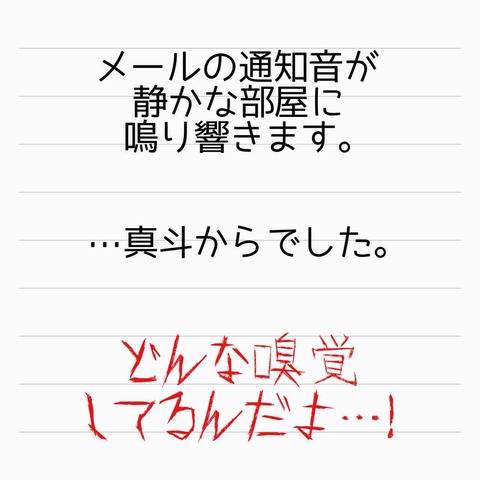 メールの通知音が
静かな部屋に
鳴り響きます。
…真斗からでした。
どんな嗅覚
してるんだよ…!